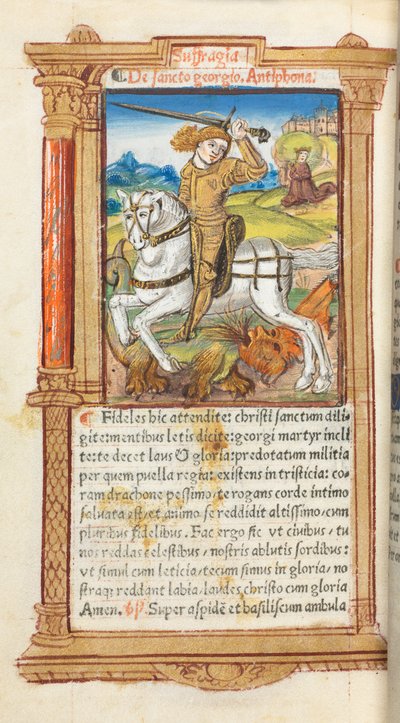 Suffragia
¶ De sancto georgio. Antiphona.
¶ Fideles hic attendite: christi sanctum dili
gite: mentibus letis dicite: georgi martyr incli
te: te decet laus & gloria: predotatum militia
per quem puella regia: existens in tristicia: co-
ram drachone pessimo, te rogans corde intimo
saluata est, et animo se reddidit altissimo, cum
pluribus fidelibus. Fac ergo sic vt ciuibus, tu
nos reddas celestibus, nostris ablutis sordibus:
vt simul cum leticia, tecum simus in gloria, no
straq; reddant labia, laudes christo cum gloria
Amen. ℣. Super aspidē et basiliscum ambula